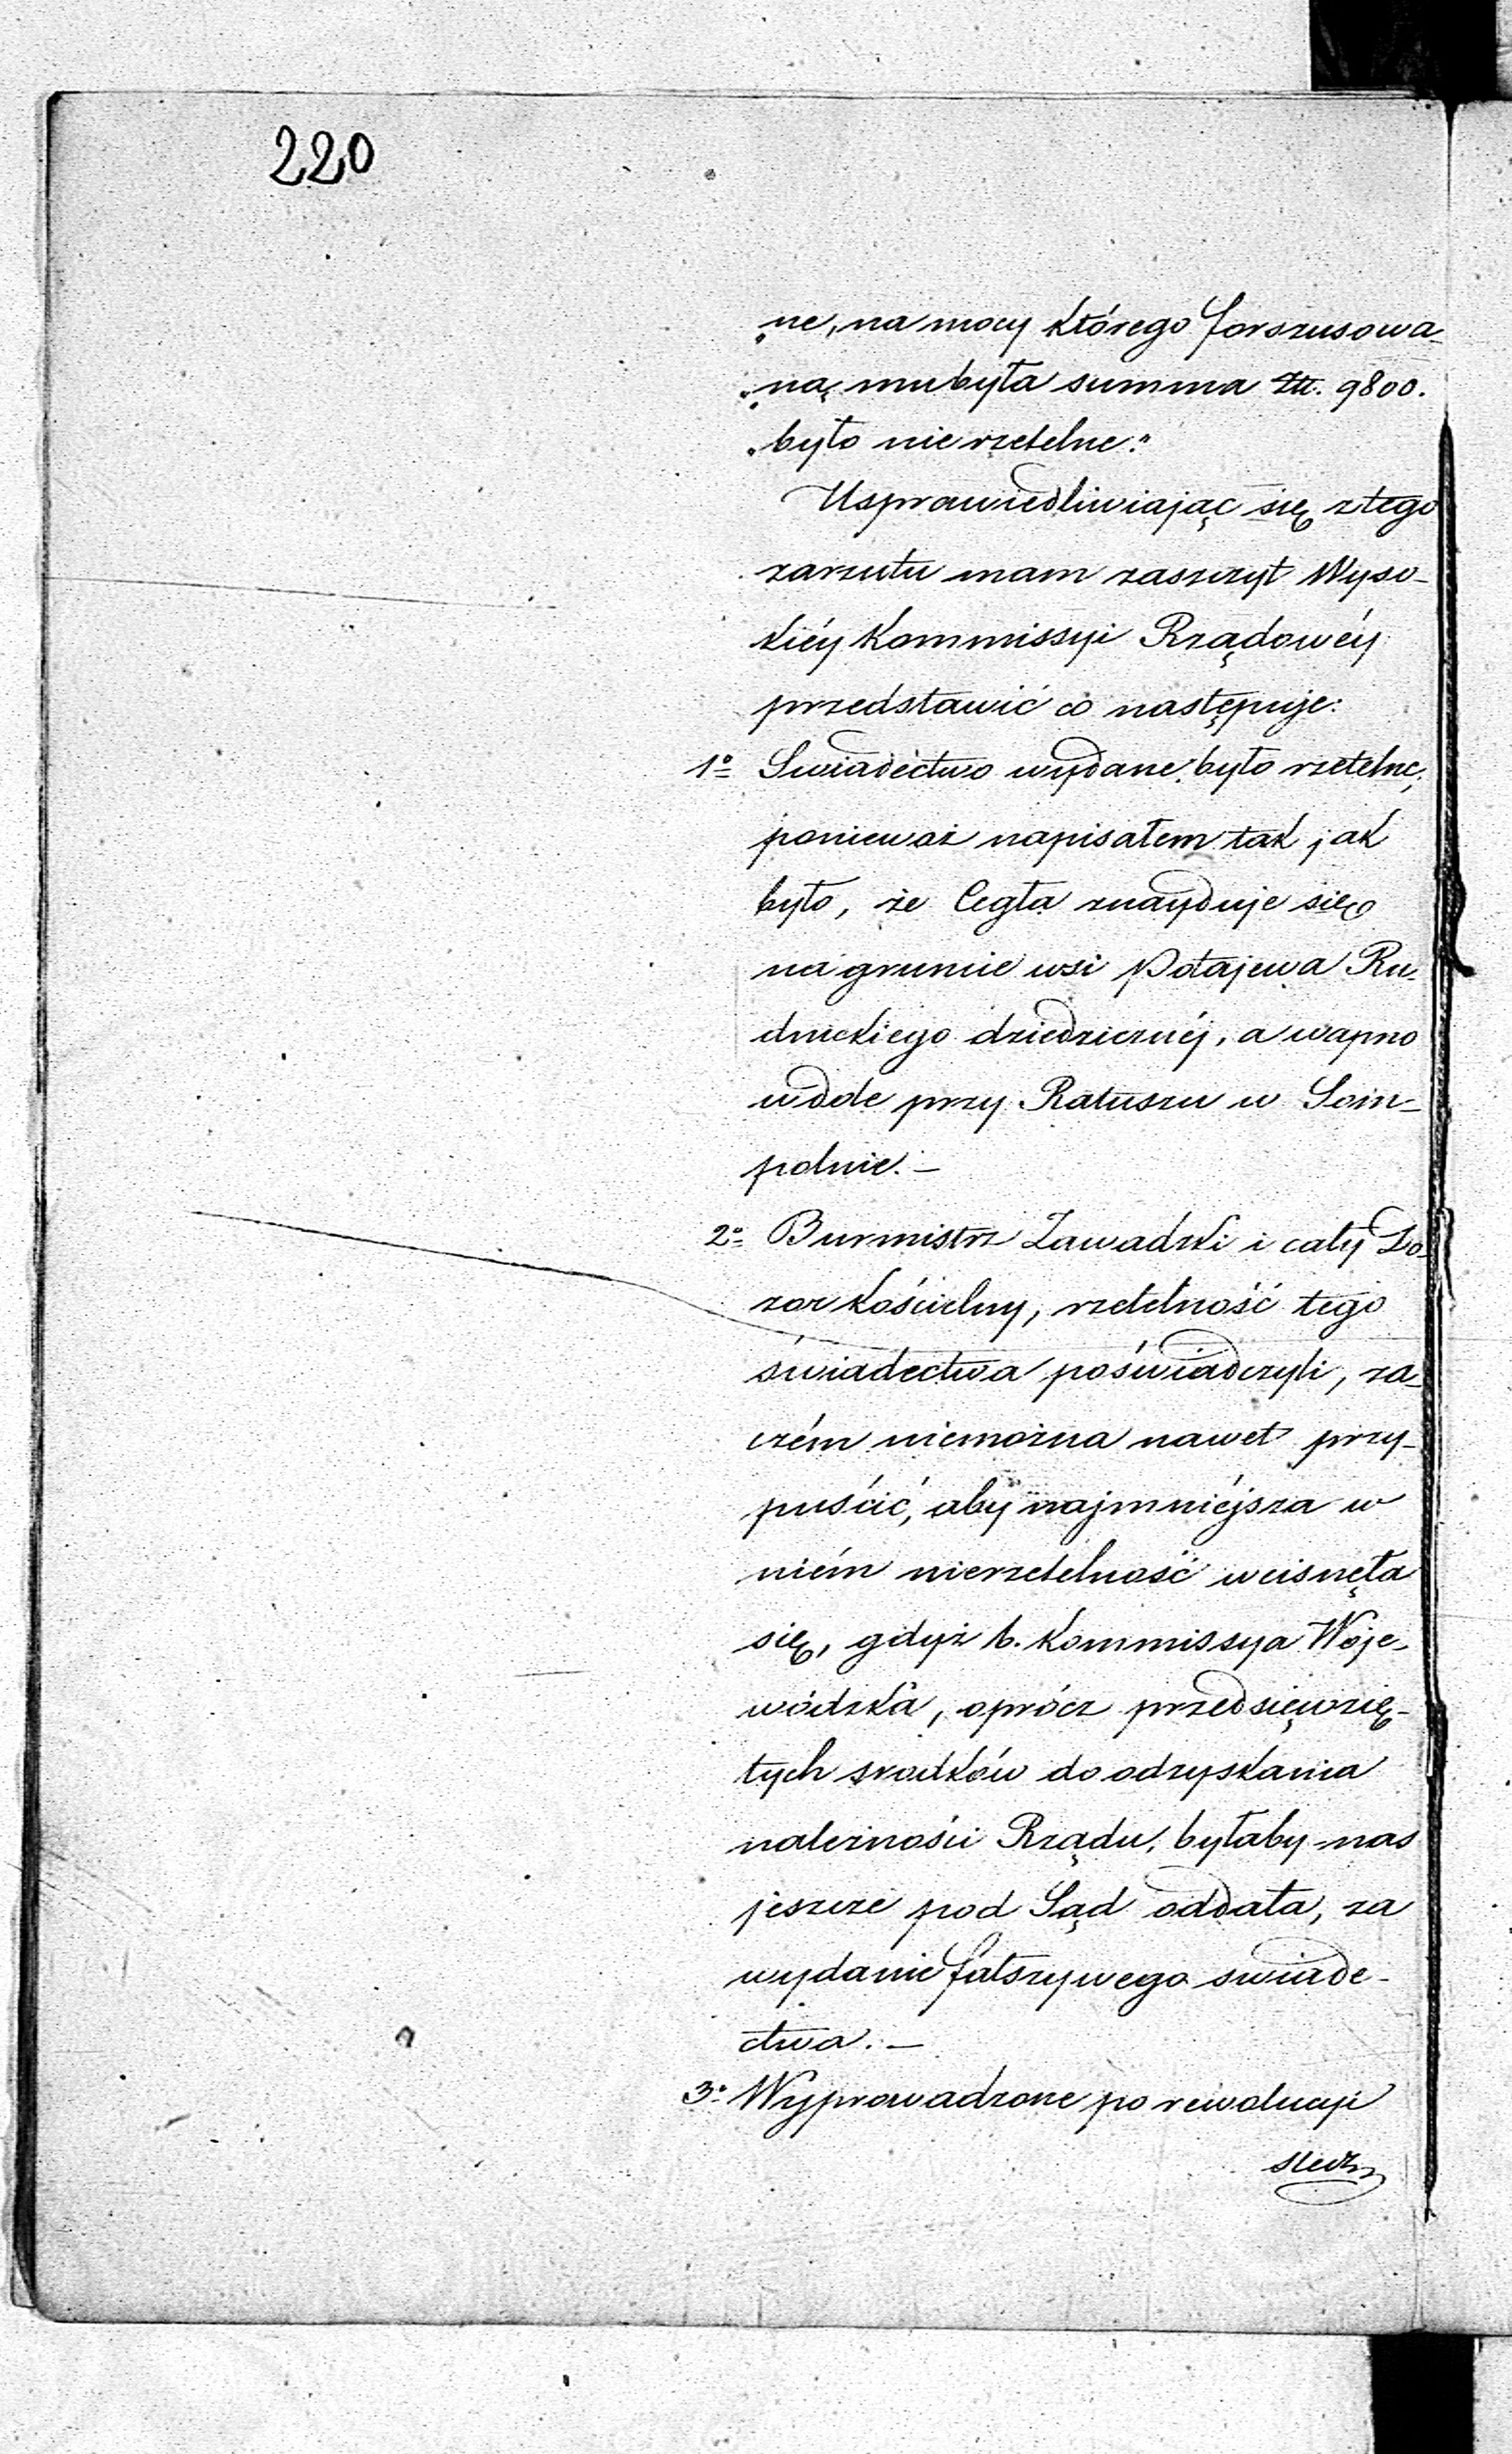 220
„ne, na mocy którego forszusowa-
„ną mu była summa Złł. 9800.
„było nierzetelne."
Usprawiedliwiając się z tego
zarzutu mam zaszczyt Wyso-
kiéy Kommissyi Rządowéy
przedstawić co następuje:
1o Swiadectwo wydane było rzetelne,
ponieważ napisałem tak jak
było, że Cegła znayduje się
na gruncie wsi Połajewa Ru-
dnickiego dziedzicznéj, a wapno
w dole przy Ratuszu w Som-
polnie. —
2o Burmistrz Zawadzki i cały Do-
zor kościelny, rzetelność tego
świadectwa poświadczyli, za-
czém niemożna nawet przy-
puścić, aby najmniéjsza w
niém nierzetelność wcisnęła
się, gdyż b. Kommissya Woje-
wódzka, oprócz przedsięwzię-
tych srodków do odzyskania
należności Rządu, byłaby nas
jeszcze pod Sąd oddała, za
wydanie fałszywego swiade-
ctwa. —
3o Wyprowadzone po rewolucyi
sledz